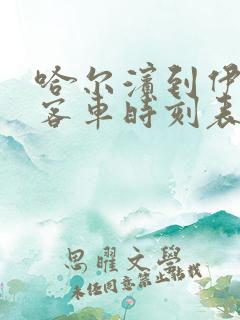 哈尔滨到伊
客车时刻表
思曜文学
未经同意禁止转载